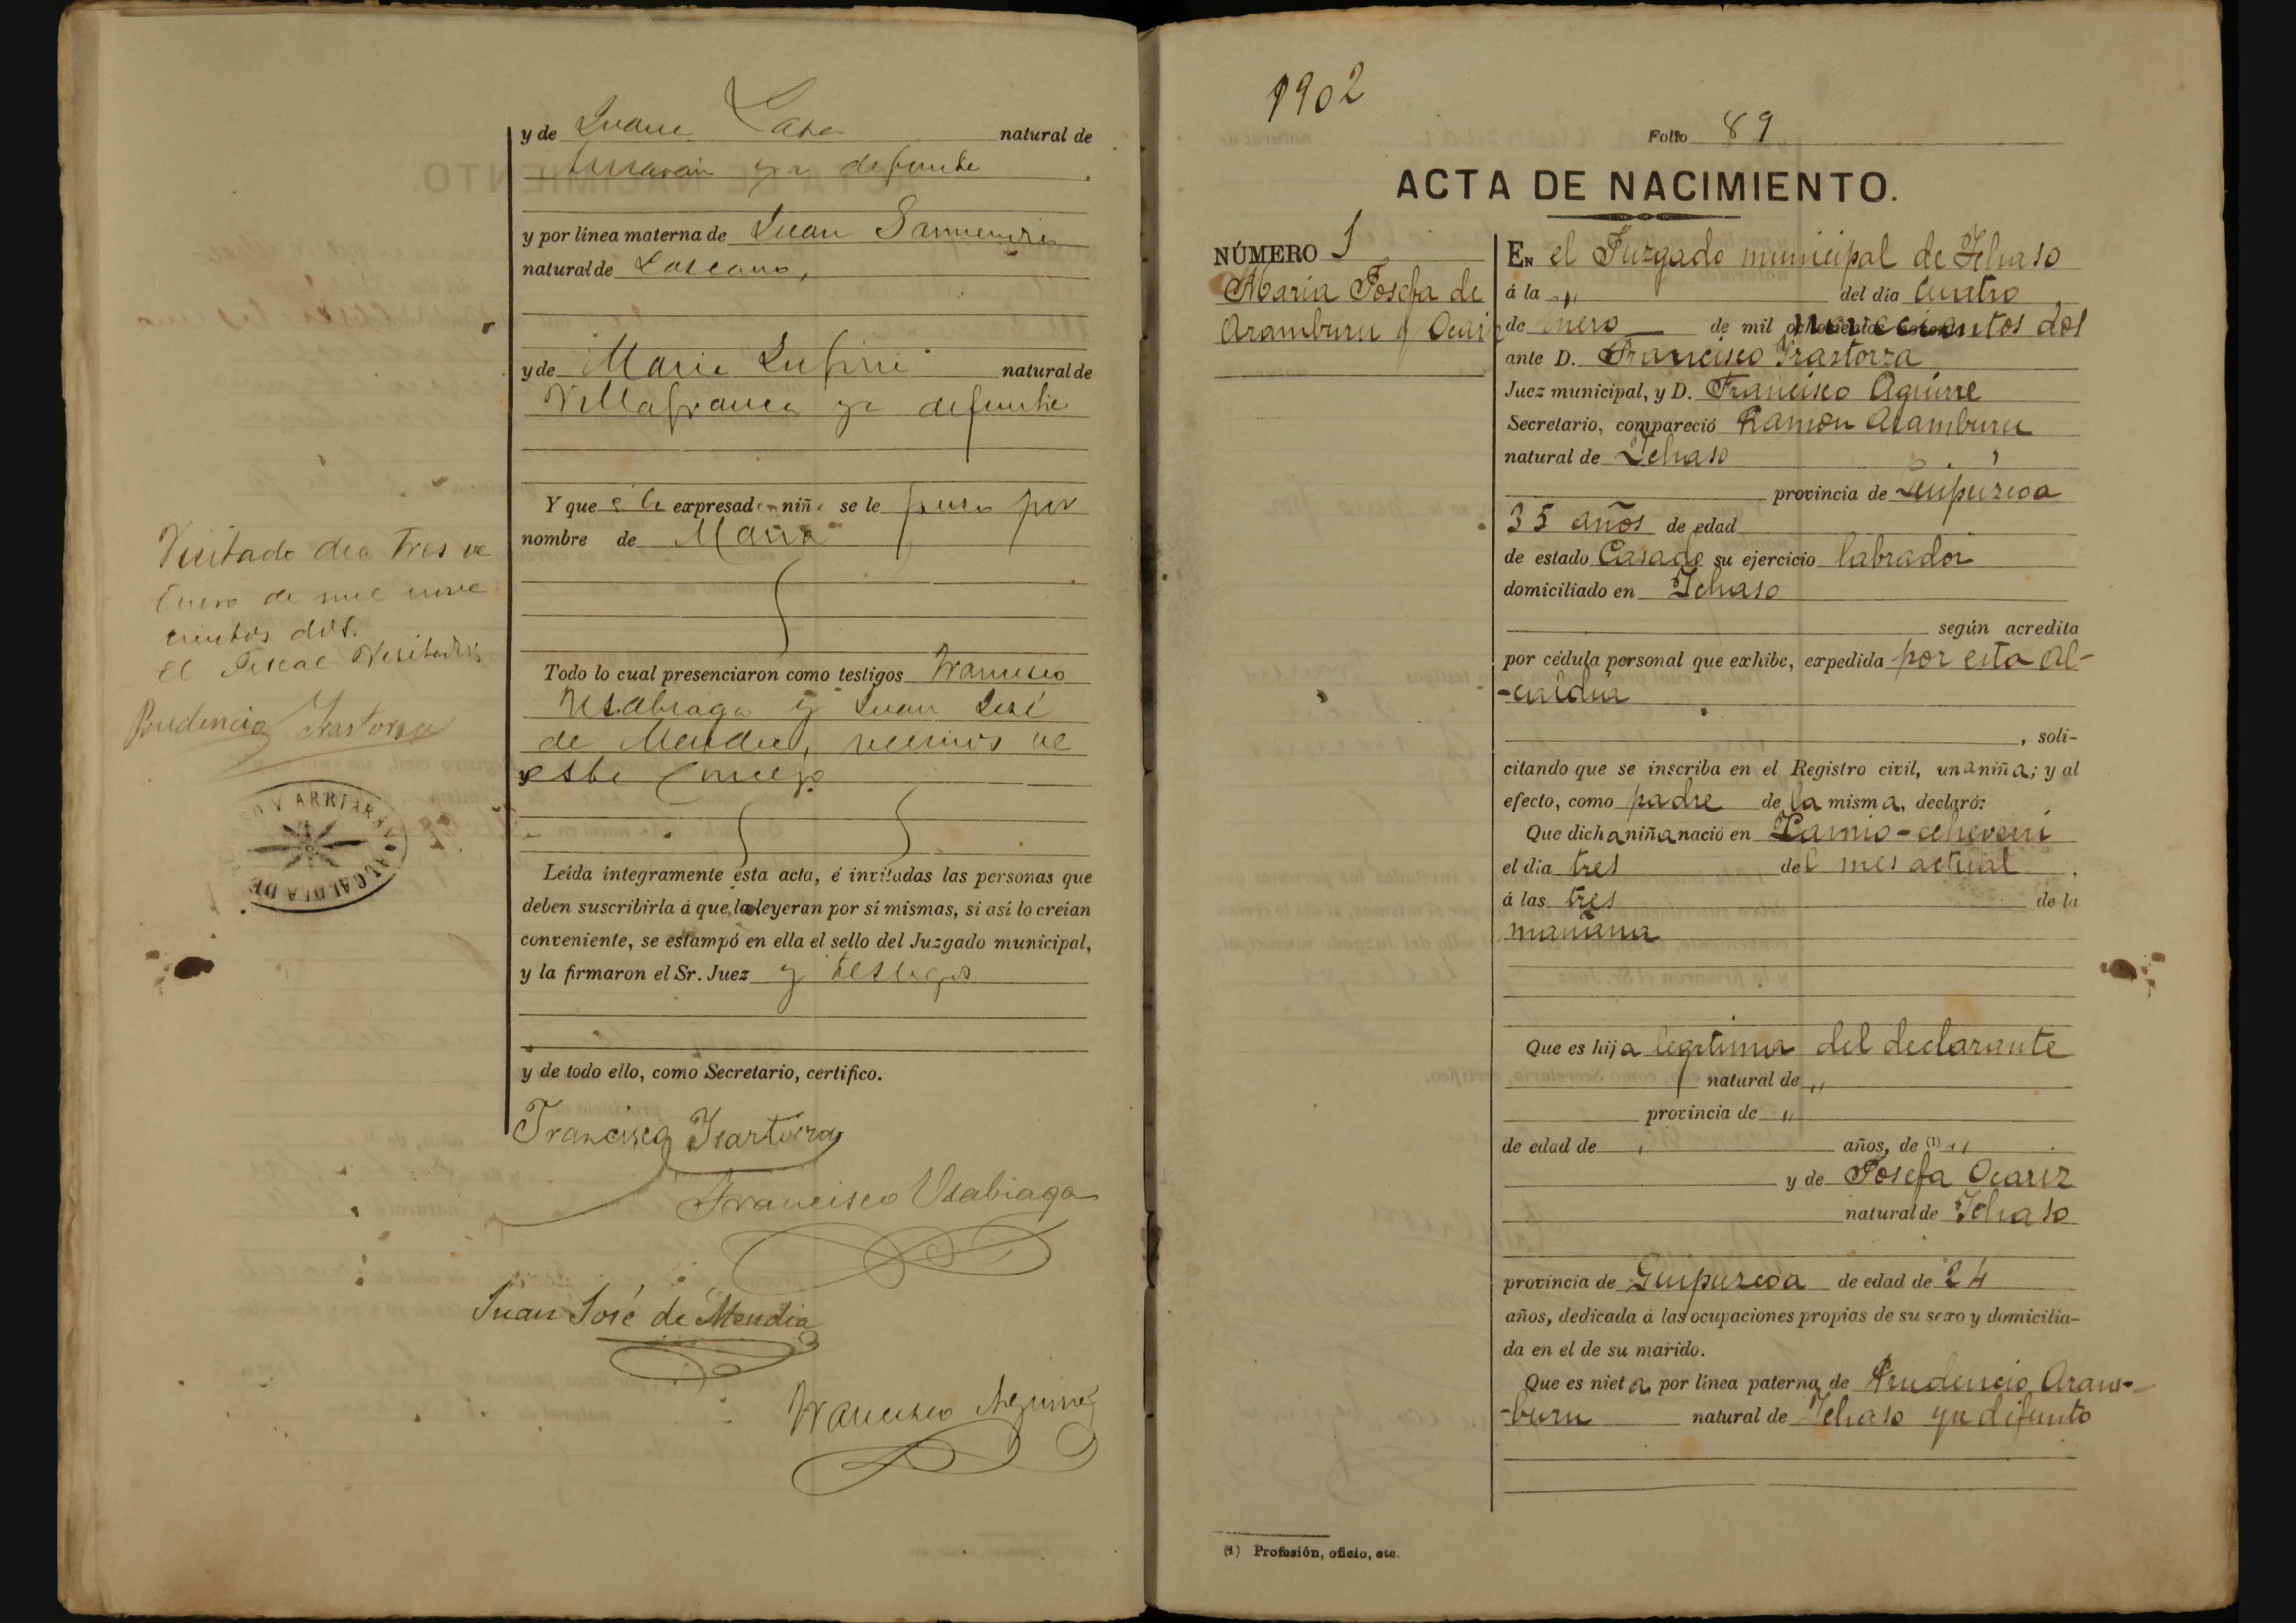 y de Juana Lasa natural de
ya defunta
y por línea materna de Juan
natural de Lascano,
y de Maria natural de
Villafranca ya defunta
Y que á la expresada niña se le puso por
nombre de Maria
Todo lo cual presenciaron como testigos Francisco
Usabiaga y Juan José
de Mendia, vecinos de
este Concejo
Leida integramente esta acta, é invitadas las personas que
deben suscribirla á que la leyeran por sí mismas, si así lo creían
conveniente, se estampó en ella el sello del Juzgado municipal,
y la firmaron el Sr. Juez y testigos
y de todo ello, como Secretario, certifico.
Francisco Irastorza
Francisco Usabiaga
Juan José de Mendia
Francisco Aguirre
Visitado dia tres de
Enero de mil nove
cientos dos.
El Fiscal Visitador,
Prudencio Irastorza
Y ARRIARAN
ALCALDIA DE
1902
Folio 89
ACTA DE NACIMIENTO.
NÚMERO 1
Maria Josefa de
Aramburu y Ocariz
En el Juzgado municipal de Ichaso
á la „ del dia cuatro
de Enero de mil novecientos dos
ante D. Francisco Irastorza
Juez municipal, y D. Francisco Aguirre
Secretario, compareció Ramon Aramburu
natural de Ichaso
provincia de Guipuzcoa
35 años de edad
de estado Casado su ejercicio labrador
domiciliado en Ichaso
según acredita
por cédula personal que exhibe, expedida por esta Al-
-caldia
, soli-
citando que se inscriba en el Registro civil, una niña; y al
efecto, como padre de la misma, declaró:
Que dicha niña nació en Lamio-echeverri
el dia tres del mes actual
á las tres de la
mañana
Que es hija legitima del declarante
natural de „
provincia de „
de edad de „ años, de (1) „
y de Josefa Ocariz
natural de Ichaso
provincia de Guipuzcoa de edad de 24
años, dedicada á las ocupaciones propias de su sexo y domicilia-
da en el de su marido.
Que es nieta por línea paterna de Prudencio Aram-
-buru natural de Ichaso ya difunto
(1) Profesión, oficio, etc.